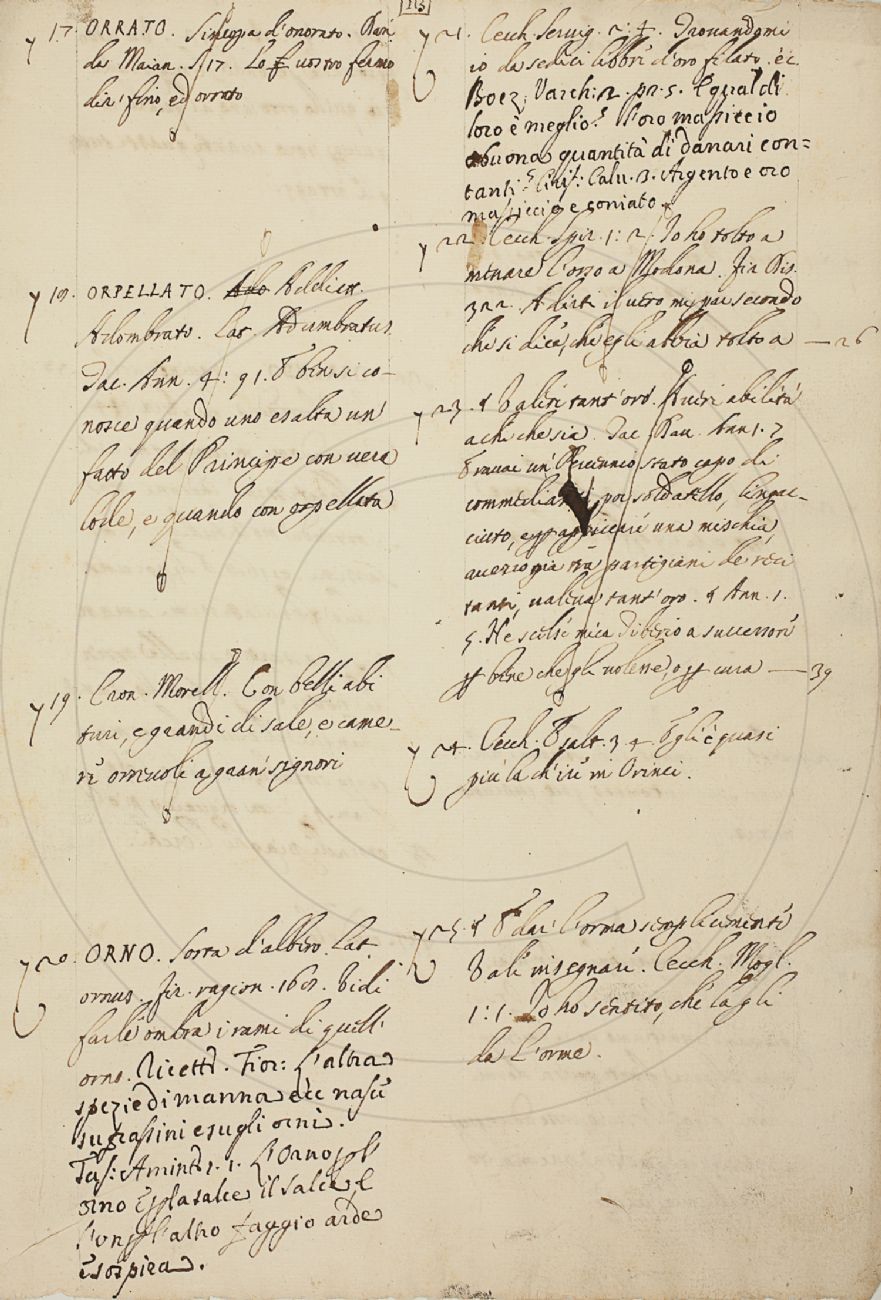 17. ORRATO. Sincopa d'onorato. Dan.
da Maian. 517. Lo vostro fermo
dir' fino, ed orrato
19. ORPELLATO. Add. da
Adombrato. Lat. Adumbratus.
Tac. Ann. 4: 91. E ben si co-
nosce quando uno esalta un'
fatto del Principe con vera
lode, e quando con orpellata
19. Cron. Morell. Con belli abi
turi, e grandi di sale, e came-
re orrevoli a gran' signori
20. ORNO. Sorta d'albero. Lat.
ornus. Fir. ragion. 160. Vidi
farle ombra i rami di quell'
orno. Ricett. Fior: L'altra
spezie di manna è e nasce
su frassini e sugli orni.
Tass: Amint. 1. 1. L'Orno per l'
orno e per la salce il salce, e
l'un per l'altro faggio arde
e sospira.
213
21. Cecch. Servig. 2: 4. Trovandomi
io da sedici libbre d'oro filato. ec
Boez: Varch: 2. pr. 5. E qual di
loro è meglio? l'oro massiccio
o buona quantità di danari con=
tanti? Crist: Calv. 3. Argento e oro
massiccio e coniato.
22. Cecch. Spir. 1: 2. Io ho tolto a
menare l'orso a Modona. Fir. Dis.
322. A dirti il vero mi par secondo
che si dice, che egli abbia tolto a — 26
23. § Valere tant' oro. Aver abilità
a chi che sia. Tac. Dav. Ann. 1. 7
Eravi un Percennio stato capo di
commedianti, poi soldatello, linguac-
ciuto, e per appiccare una mischia,
avezzo già tra partigiani de reci
tanti, valeva tant' oro. § Ann. 1.
5. Ne scelse mica Tiberio a successore
per bene che gli volesse, o per cura — 39
24. Cecch. Esalt. 3 4. Egli è quasi
più la ch'ire in Orinci.
25. § E dar l'orma semplicemente
Vale insegnare. Cecch. Mogl.
1: 1. Io ho sentito, che la gli
da l'orme.